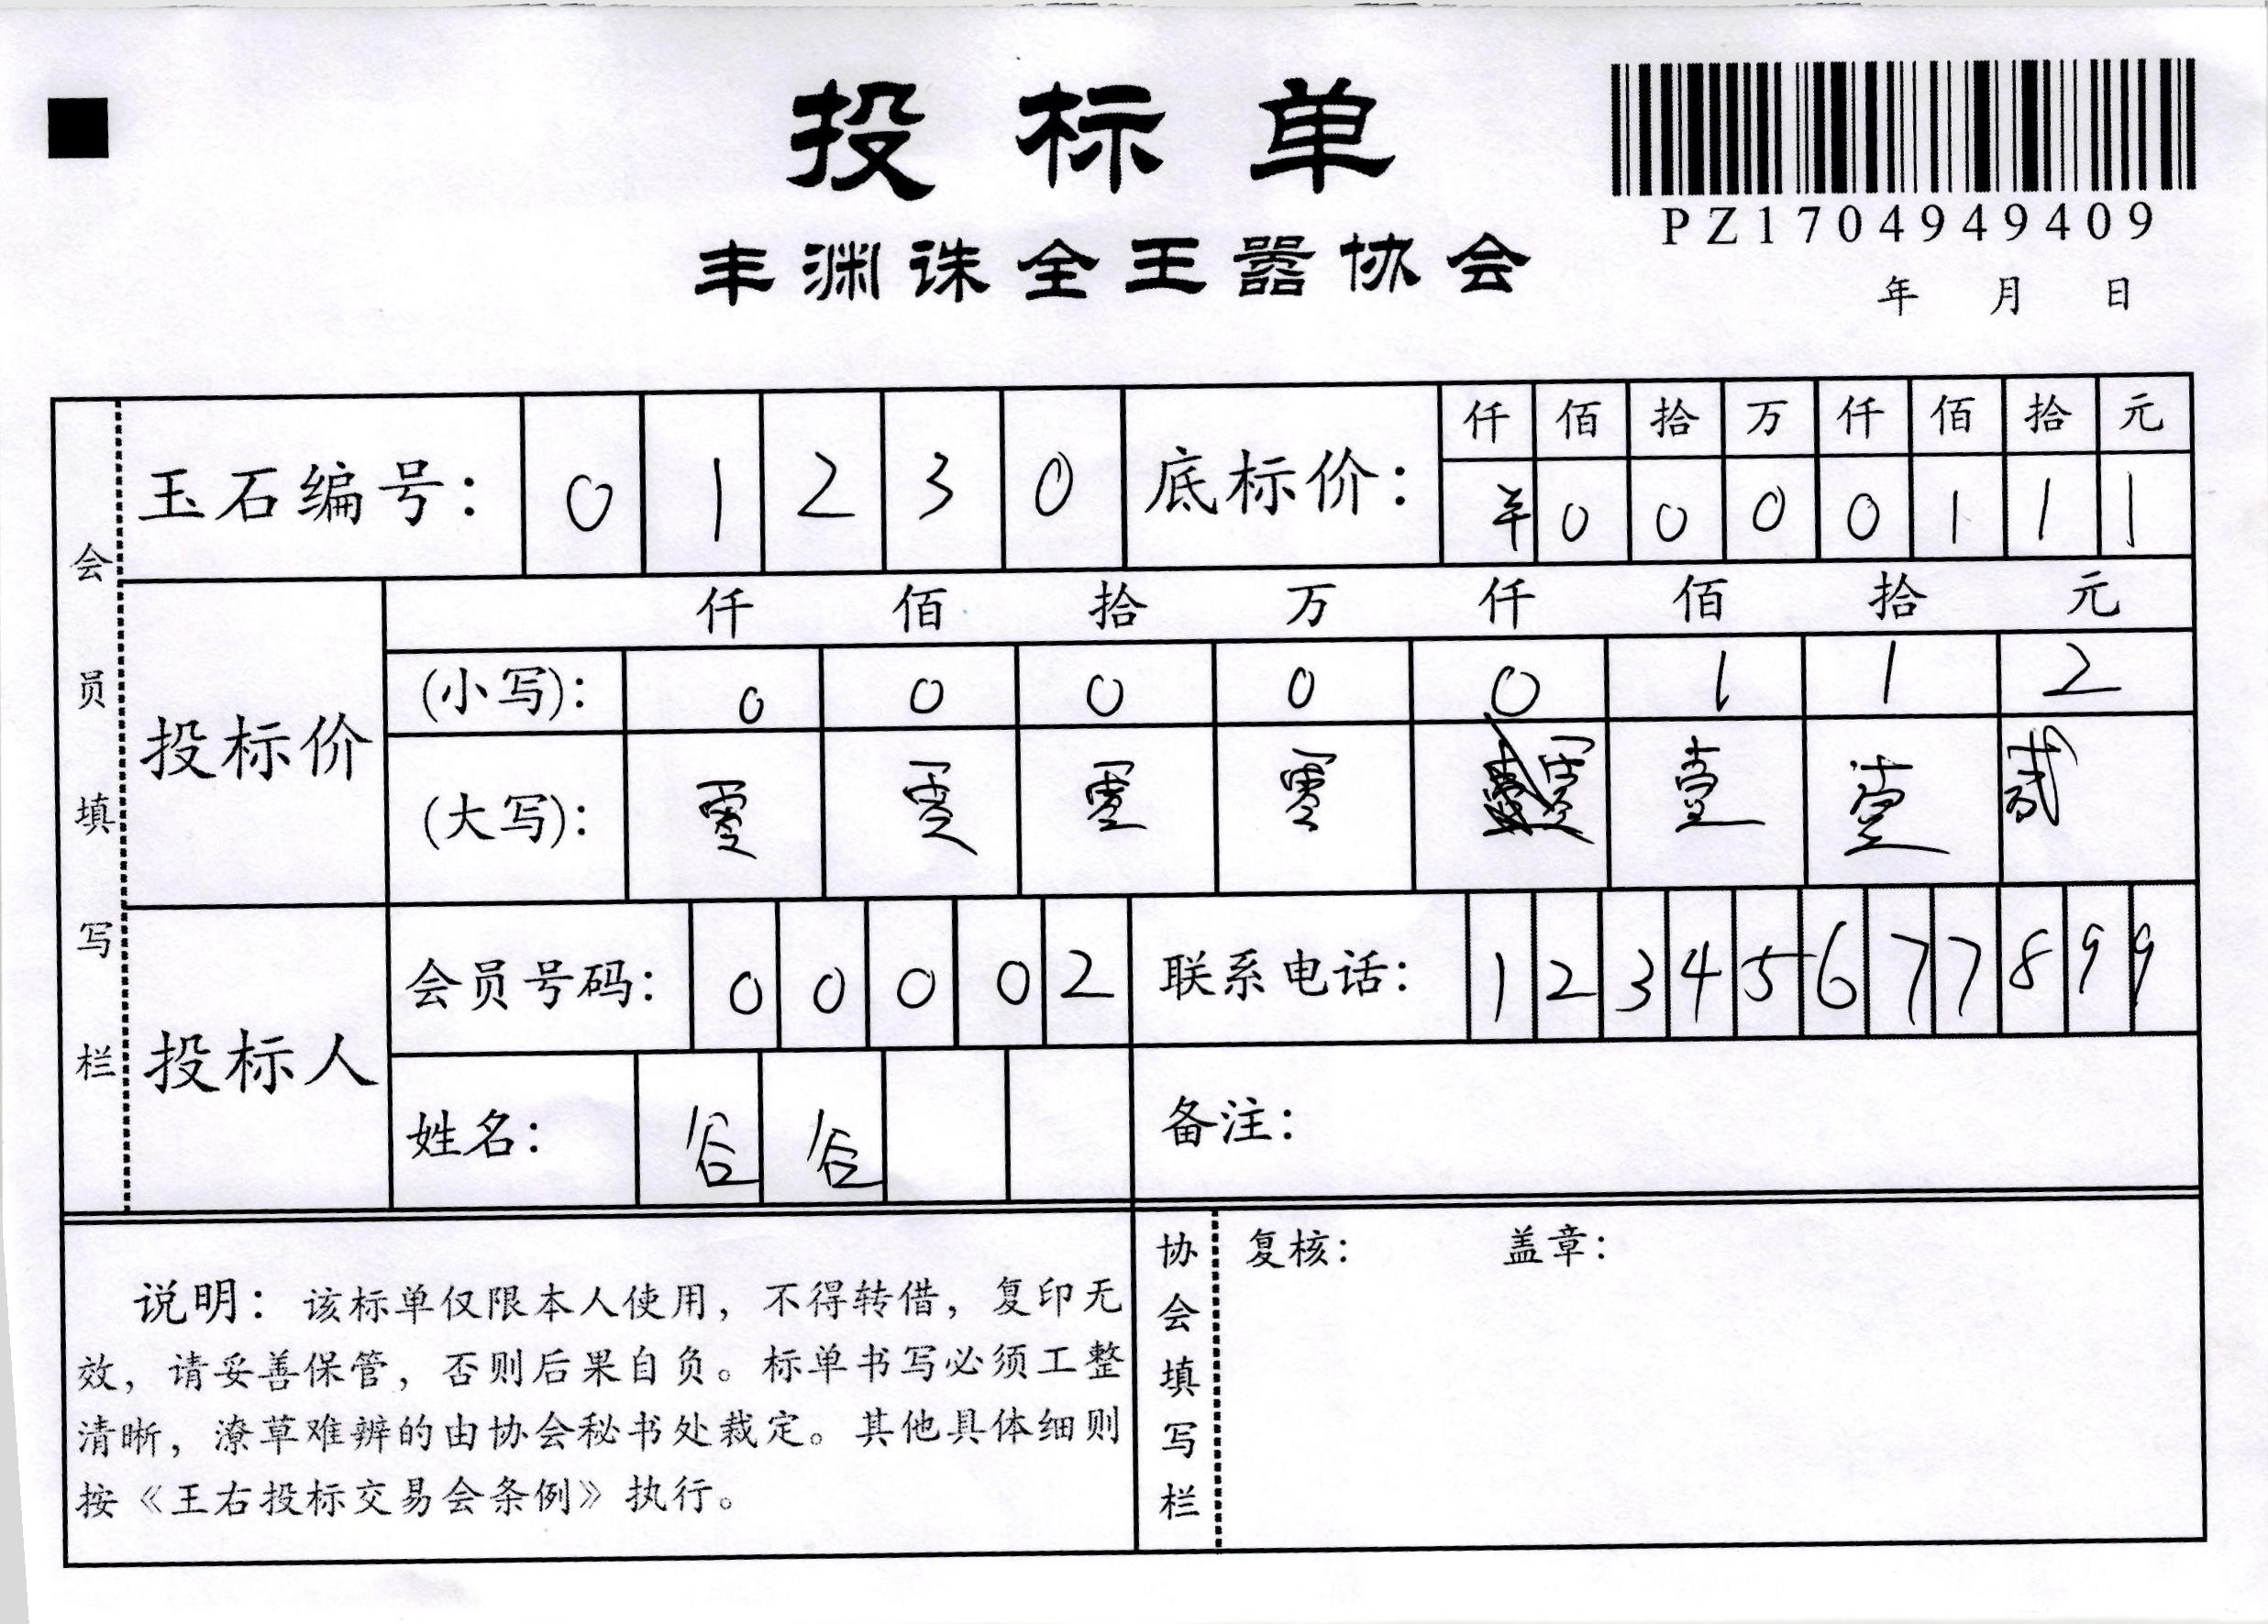 投标单
PZ1704949409
丰渊诛全王嚣协会
年 月 日
会员填写栏
玉石编号： 0 1 2 3 0
底标价： 仟 佰 拾 万 仟 佰 拾 元
¥ 0 0 0 0 1 1 1
投标价
仟 佰 拾 万 仟 佰 拾 元
(小写)： 0 0 0 0 0 1 1 2
(大写)： 零 零 零 零 零 壹 壹 贰
投标人
会员号码： 0 0 0 0 2
联系电话： 1 2 3 4 5 6 7 7 8 9 9
姓名： 谷 谷
备注：
说明：该标单仅限本人使用，不得转借，复印无
效，请妥善保管，否则后果自负。标单书写必须工整
清晰，潦草难辨的由协会秘书处裁定。其他具体细则
按《王右投标交易会条例》执行。
协会填写栏
复核： 盖章：